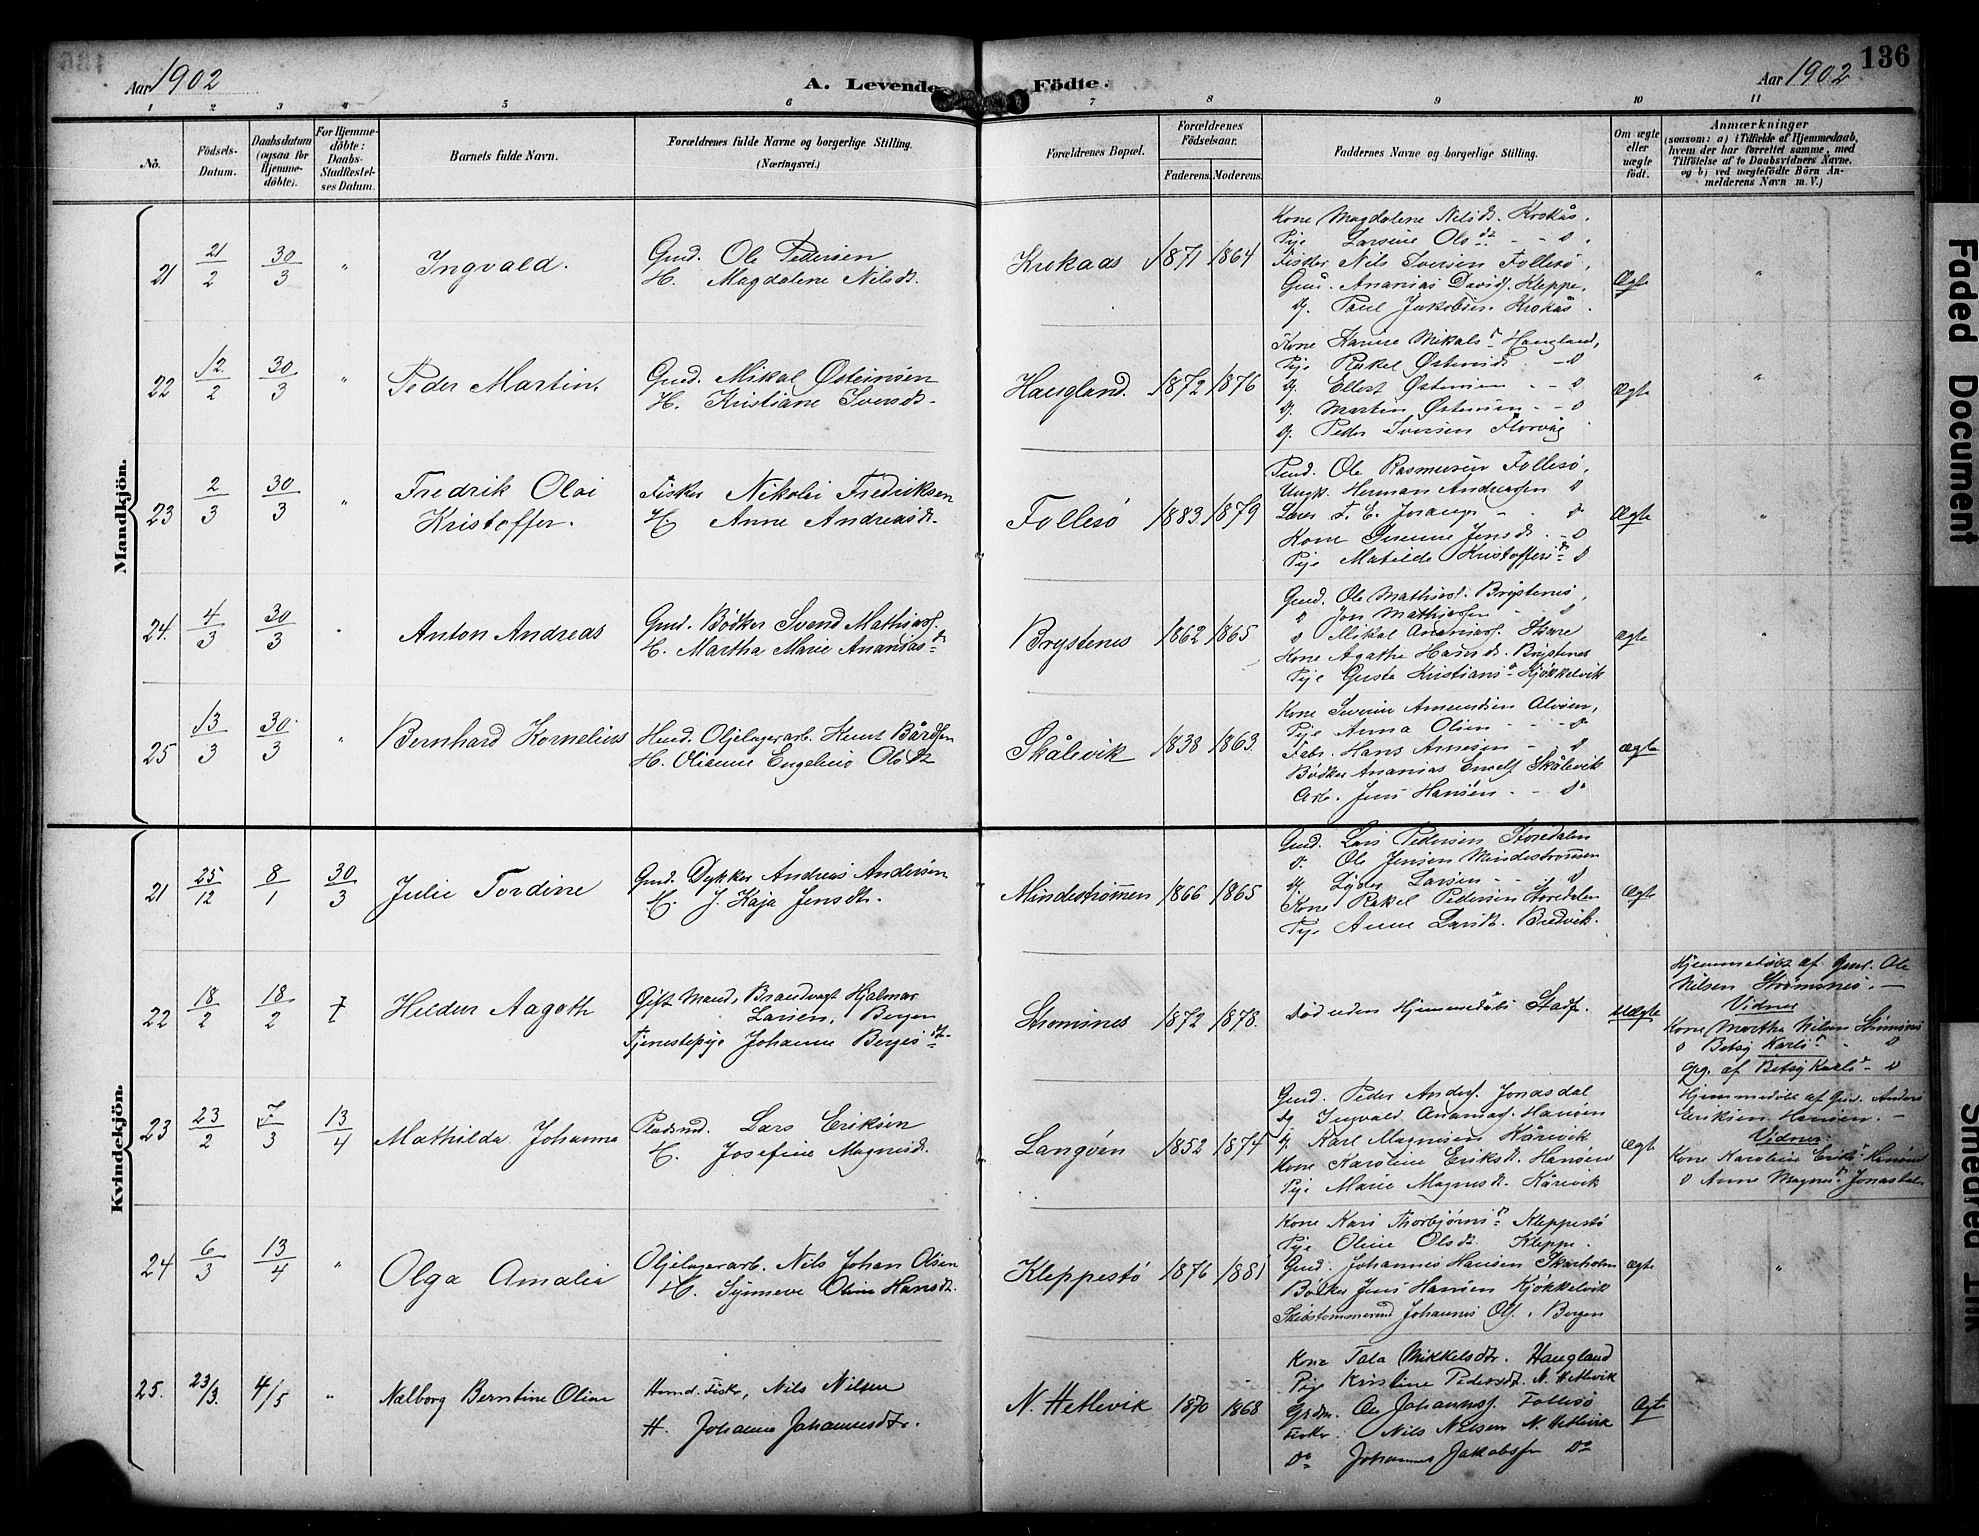 136
Aar 1902
A. Levende Födte.
Aar 1902
1 2 3 4 5 6 7 8 9 10 11
No.
Födsels-Datum.
Daabsdatum (ogsaa for Hjemme-döbte).
For Hjemme-döbte: Daabs-Stadfæstel-ses Datum.
Barnets fulde Navn.
Forældrenes fulde Navne og borgerlige Stilling. (Næringsvei.)
Forældrenes Bopæl.
Forældrenes Födselsaar.
Faderens. Moderens.
Faddernes Navne og borgerlige Stilling.
Om ægte eller uægte födt.
Anmærkninger
(saasom: a) i Tilfælde af Hjemmedaab,
hvem der har forrettet samme, med
Tilföielse af to Daabsvidners Navne.
og b) ved uægtefödte Börn An-
melderens Navn m. V.)
Mandkjön.
21 21/2 30/3 " Ingvald.
Gmd. Ole Pedersen
H. Magdalene Nilsdt.
Krekaas 1871 1864
Kone Magdalene Nilsdt. Krokås.
Pige Larsine Olsdt - - d.
Fisker Nils Iversen Follesø,
Gmd. Ananias Davids. Kleppe.
Paul Jakobsen Krokås.
Ægte "
22 12/2 30/3 " Peder Martin.
Gmd. Mikal Østeinsen
H. Kristiane Iversdt.
Haugland. 1872 1876
Kone Karine Mikals Haugland,
Pige Rakel Østensdt. - d
Ellert Østensen - - d
Martin Østensen - - d
Peder Iversen Florvåg
Ægte "
23 2/3 30/3 " Fredrik Olai
Kristoffer.
Fisker Nikolai Fredriksen
H. Anne Andreasdt.
Follesø 1883 1879
Ole Rasmussen Follesø,
Ungk. Herman Andreassen d
Lærer
Kone Jensdt. - d
Pige Matilde Kristoffersdt d
Ægte "
24. 4/3 30/3 " Anton Andreas
Gmd. Bødker Svend Mathias.
H. Martha Marie Ananiasdt
Brystenes 1862 1865
Gmd. Ole Mathias. Brystenes,
d Jon Mathiassen - d
d Mikal Ananias. Skare
Kone Agathe Hansdt. Brystenes
Pige Gusta Kristians Kjøkkelvik
ægte "
25 13/3 30/3 " Bernhard Kornelius
Husd. Oljelagerarb. Knut Bårdsen
H. Olianne Engeline Olsdt
Skålevik 1838 1863.
Kone Severine Amundsen Alvøen,
Pige Anna Olsen - - - d
Fabr. Hans Arnesen - d
Bødker Ananias Skålevik
Arb. Jens Hansen - - d
ægte
Kvindekjön.
21 25/12 8/1 30/3 Julie Tordine
Gmd. Dykker Andreas Andersen
H. J. Kaja Jensdt.
Mindestrømmen 1866 1865
Gmd. Lars Pedersen Storedalen
d. Ole Jensen Mindestrømmen
Lyder Larsen - - d
Kone Rakel Pedersen Storedalen
Pige Anne Larsdt. Bredvik.
Ægte
22 18/2 18/2 Heldur Aagoth
Gift Mand, Brandvagt Hjalmar
Larsen, Bergen
Tjenestepige Johanne Bergesdt.
Stromsnes 1872 1878.
Død uden Hjemmedåbs Stadf.
Uægte
Hjemmedøbt af Gmd. Ole
Nilsen Strømsnes. -
Vidner
Kone Martha Nilsen Strømsnes
d Betsy Karls d
Opg. af Betsy Karls - d
23 23/2 7/3 13/4 Mathilda Johanna
Pladsmd. Lars Eriksen
H. Josefine Magnusdt.
Langøen 1852 1874
Gmd. Peder Anders. Jonasdal
do Ingvald Ananias. Hansøen
Karl Magnusen Kårevik
Kone Karoline Eriksdt. Hansøen
Pige Marie Magnusdt. Kårevik
Ægte
Hjemmedøbt af Gmd. Anders
Eriksen Hansøen. -
Vidner.
Kone Karoline Eriks Hansøen
d Anne Magnus Jonasdal
24 6/3 13/4 " Olga Amalia
Oljelagerarb. Nils Johan Olsen
H. Synneve Oline Hansdt.
Kleppestö 1876 1881
Kone Kari Thorbjørns Kleppestö
Pige Oline Olsdt. Kleppe.
Gmd. Johannes Hansen Skarholm
Bødker Jens Hansen Kjøkkelvik
Skibstømmermd Johannes Ols. Bergen
ægte "
25. 23/3. 4/5 " Nalborg Berntine Oline
Husmd. Fisker, Nils Nilsen
H. Johanna Johannesdtr.
N. Hetlevik 1870 1868
Kone Tala Mikkelsdtr. Haugland
Pige Kristine Pedersdt. N. Hetlevik
Grdm. Ole Johannes. Follesø
Fisker. Nils Nilsen N. Hetlevik
Do Johannes Jakobsen Do
Ægte
Faded Document
Smeared Ink